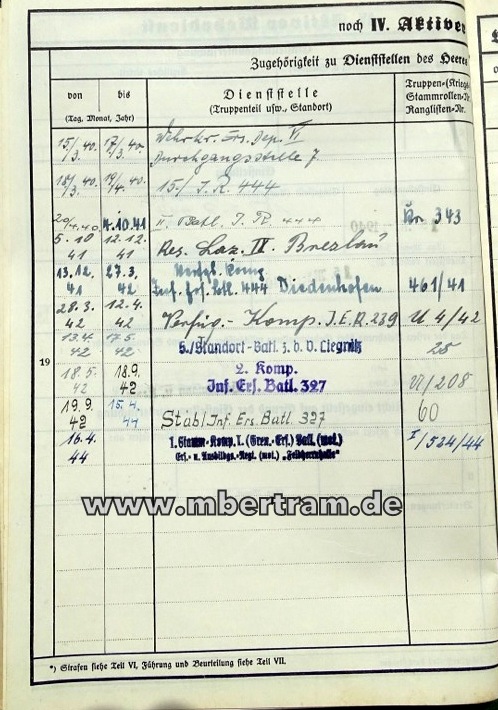 noch IV. Aktiver
Zugehörigkeit zu Dienststellen des Heeres
von bis Dienststelle Truppen-(Kriegs-
(Tag, Monat, Jahr) (Truppenteil usw., Standort) Stammrollen-Nr.
Ranglisten-Nr.
15/3.40. 17/3.40. Wehrkr. Ers. Dep. VI
Durchgangsstelle 7
18/3.40. 19/4.40. 15./ I.R. 444
20/4.40 4.10.41 II Batl. I. R. 444 Kr. 343
5.10 41 12.12. 41 Res. Laz. IV Breslau
13.12. 41 27.3. 42 Inf. Ers. Btl. 444 Diedenhofen 461/41
28.3. 42 12.4. 42 Komp. I.E.R. 239 U 4/42
19
13.4. 42 17.5. 42 5./Standort-Batl. z. b. V. Liegnitz 25
18.5. 42 18.9. 42 2. Komp. VI/208
Inf. Ers. Batl. 327
19.9. 42 15.4. 44 Stab/Inf. Ers. Batl. 327 60
16.4. 44 1. Stamm-Komp. I. (Gren.-Ers.) Batl. (mot.) I/524/44
Ers.- u. Ausbildgs.-Regt. (mot.) „Feldherrnhalle"
www.mbertram.de
*) Strafen siehe Teil VI, Führung und Beurteilung siehe Teil VII.